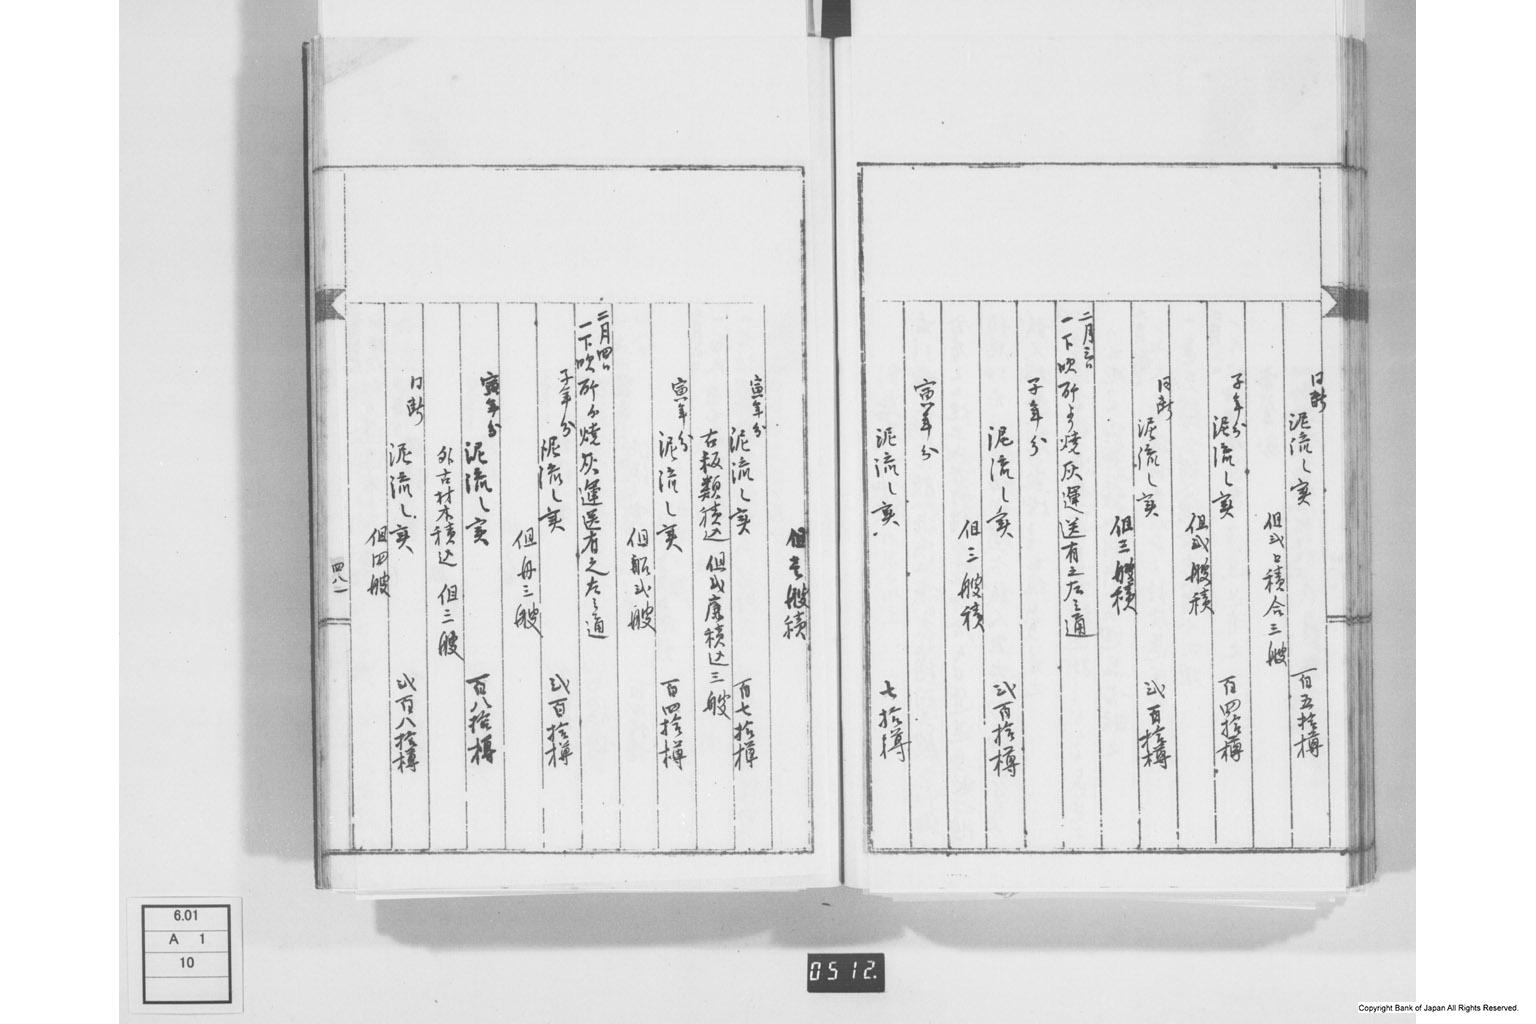 同断
泥流し実
百五拾樽
但弐口積合三艘
子年分
泥流し実
百四拾樽
但弐艘積
同断
泥流し実
弐百拾樽
但三艘積
二月三日
一下吹所ゟ焼灰運送有之左之通
子年分
泥流し実
弐百拾樽
但三艘積
寅年分
泥流し実
七拾樽
但壱艘積
寅年分
泥流し実
百七拾樽
古板類積込
但弐廉積込三艘
寅年分
泥流し実
百四拾樽
但船弐艘
二月四日
一下吹所ゟ焼灰運送有之左之通
子年分
泥流し実
弐百拾樽
但舟三艘
寅年分
泥流し実
百八拾樽
外古材木積込
但三艘
同断
泥流し実
弐百八拾樽
但四艘
四八一
6.01
A 1
10
0512.
Copyright Bank of Japan All Rights Reserved.